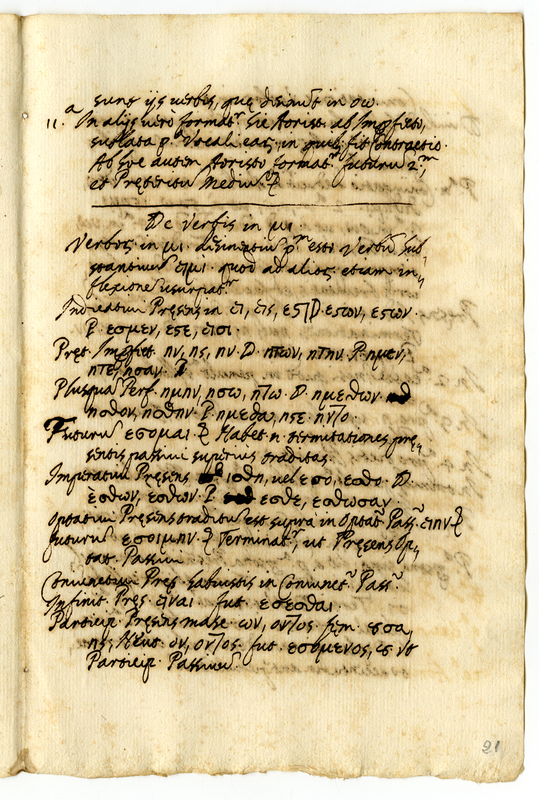 a sunt ijs uerbis, quę desinũt in οω.
11. In alijs uerò format.^r hic Aorist. ab Imperfecto,
sublata p.ª Vocali eaq; in quib; fit contractio
Ab hoc autem Aoristo format.^r futurũ 2.^m,
et Pręteritũ Mediũ
De Verbis in μι.
Verboꝝ in μι diũ p.^m est Verbũ sub„
stantiuũ εἰμι. quod ad alios etiam in„
flexione usurpat.^r
Indicatiui Pręsens in ει, εις, εςι D. εςον, εςον.
P. εσμεν, εςε, εισι.
Pręt. Imperfect. ην, ης, ην. D. ητον, ητην. P. ημεν,
ητε, ησαν.
Plusquã Perf. ημην, ησω, ητο. D. ημεθων
ησθον, ησθην. P. ημεθα, ησε. ηντο.
Futurũ εσομαι. Habet n. terminationes pre„
sentis passiui superius traditas.
Imperatiui Pręsens ισθη, uel εσο, εσθο. D.
ἐσθων, εσθων. P. εσθε, εσθωσαν.
Optatiui Pręsens traditũ est supra in Optat. Pass. ειην
futurũ εσοιμην. Terminat.^r, ut Pręsens Op„
tat. Passiui
Coniunctiui Pręs. habuistis in Coniunct. Pass.
Infinit. Pręs. εἰναι fut. εσεσθαι.
Particip. Pręsens masc. ων, οντος. fęm. ουσα,
ης, Neut. ον, οντος. fut. εσομενος, ut
Particip. Passiuũ.
21